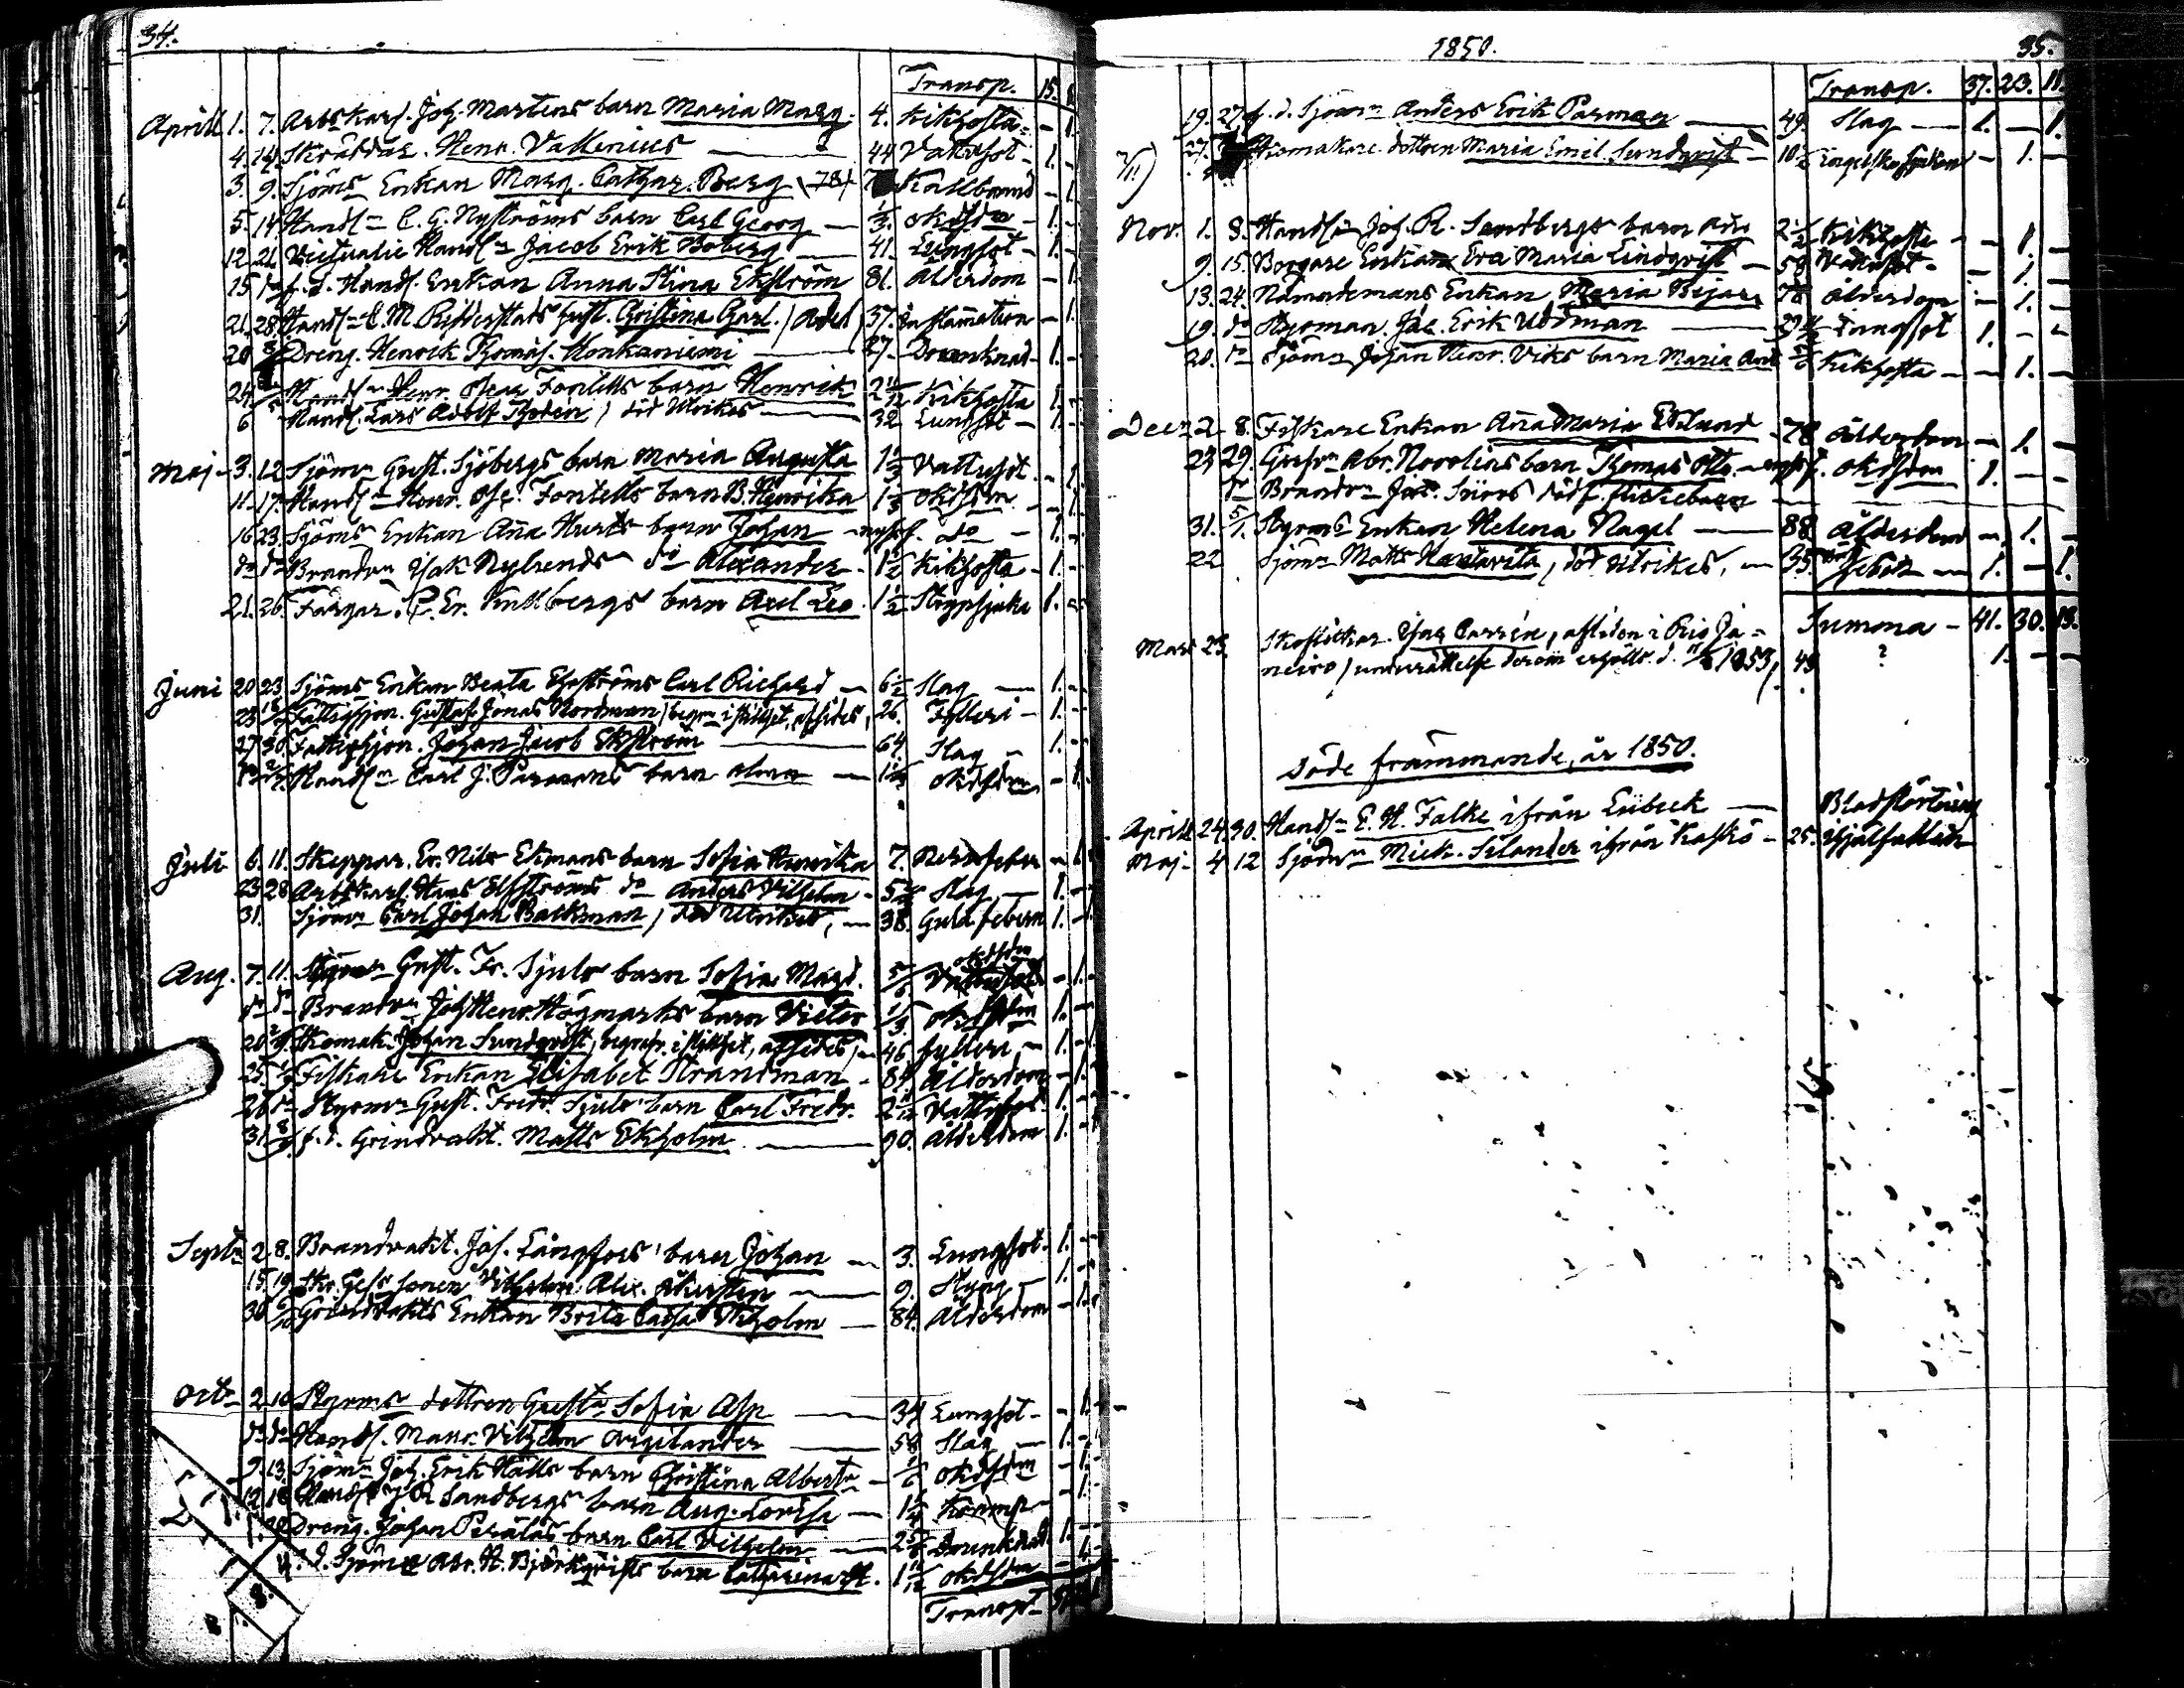 34.
Transp. 15.
Aprill 1. 7. Arbskarl. Joh. Martens barn Maria Marg. 4. Kikhosta - 1.
4. 14. Skräddar. Henr. Vallenius 44 Vattusot - 1.
3. 9. Sjöms Enkan Marg. Cathar. Berg (78) Kallbrand - 1.
5. 14 Handln C. G. Nyströms barn Carl Georg 1/3. okdsdm - 1.
12. 21. Victualie Handln Jacob Erik Boberg 41. Lungsot - 1.
15 do f. d. Handl. Enkan Anna Stina Ekström 81. Ålderdom - 1.
21. 28. Handln C. M. Ridderstads hust. Christina Charl. / Adel / 37. Inflamation - 1.
20 Dreng. Henrik Thomas. Honkaniemi 27. Drunknad - 1.
24 Handln Henr. Oscar Fontells barn Henrik 2 11/12 Kikhosta 1.
6 Handl. Lars Adolf Thodein, död Utrikes 32 Lungsot - 1.
Maj - 3. 12 Sjömn Gust. Sjöbergs barn Maria Augusta 1 1/3 Vattusot - 1.
11. 17. Handln Henr. Osc. Fontells barn B. Henrika 1 1/3 okdsdm - 1.
16 23. Sjöms Enkan Anna Hurts barn Johan - nysf. do - 1.
do do Brandvn Isak Nylunds do Alexander 1 1/2 Kikhosta - 1.
21. 26. Färgar. C. Er. Kullbergs barn Axel Leo 1 1/2 Strypsjuka 1.
Juni 20 23. Sjöms Enkan Beata Ehrströms Carl Richard - 6 1/2 Slag - 1.
23 Fattighjon. Gustaf Jonas Nordman / begrn i stillhet, afsides, 26. Fylleri - 1.
27 30. Fattighjon. Johan Jacob Ekström 64. Slag - 1.
do Handln Carl J. Parmans barn Alma - okdsdm - 1.
Juli 6. 11. Skeppar. Er. Nils Ekmans barn Sofia Henrika 7. Nervfeber - 1.
23 28 Arbskarl. Hans Elfströms do Anders Vilhelm - Slag - 1.
31. Sjömn Carl Johan Backman, död Utrikes, - 38. Gula febern 1.
Aug. 7. 11. Styrmn Gust. Fr. Sjuls barn Sofia Magd. 5/6 okdsdm - 1.
do do Brandvn Joh Henr. Högmarks barn Victor 1/3. okdsdm 1.
20 Skomak. Johan Sundqvist, begrafn. i stillhet, afsides, - 46 fylleri - 1.
25. Fiskare Enkan Elisabet Strandman - 84. Ålderdom - 1.
26 do Styrmn Gust. Fredr. Sjuls barn Carl Fredr. 2 11/12 Vattusot - 1.
31. 8/9. f. d. Grindvakt. Matts Ekholm 90. Ålderdom 1.
Septr 2. 8. Brandvakt. Joh. Långfors' barn Johan - 3. Lungsot - 1.
15. 19. Skr. Gess. sonen Vilhelm Alex. 9. Styng - 1.
30 6/10 Grindvakts Enkan Brita Caisa Ekholm - 84. Ålderdom - 1.
Octr 2. 10 Styrms dottren Gusta Sofia Asp 34 Lungsot - 1.
do do Handl. Manr. Vilhelm Argelander 58 Slag - 1.
9. 13. Sjömn Joh. Erik Hälls barn Christina Alberta - okdsdm - 1.
12. 18 Handln J. R. Sandbergs barn Aug. Lovisa - 1 1/4 Kramp - 1.
20 Dreng. Johan Perälas barn Carl Vilhelm - Drunknad 1.
f. d. Sjömn Abr. H. Björkqvists barn Catharina St. 1 11/12 okdsdm - 1.
Transpt
1850. 35.
Transp. 37. 23. 11.
19. 27. f. d. Sjömn Anders Erik Parman 49. Slag - 1. - 1.
27. Skomakare dottren Maria Emel. Sundqvist - 10 1/2 Engelska sjukan - 1. -
Nov. 1. 8. Handln Joh. R. Sandbergs barn Ada 2 1/2 Kikhosta - 1. -
9. 15. Borgare Enkan Eva Maria Lindqvist - 58 Vattusot - 1. -
13. 24. Nämndemans Enkan Maria Bejar 78 Ålderdom - 1. -
19. do Styrman. Jac. Erik Uddman Lungsot 1. - -
20. do Sjömn Johan Henr. Viks barn Maria Ant. 5/6 Kikhosta - 1. -
Decr 2 8. Fiskare Enkan Anna Maria Eklund 78 Ålderdom - 1. -
23 29. Garfvn Abr. Novelins barn Thomas Otto - nysf. okdsdm 1. -
do Brandvn Jac. dödf. flickebarn
31. 5/1. Styrms Enkan Helena Nagel 88 Ålderdom - 1. -
22 Sjömn Matts Hautavita, död utrikes, - 35. feber - 1. - 1.
Summa - 41. 30. 13.
Mars 23. Isac Carrén, afliden i Rio Ja=
neiro / underrättelse derom erhölls d. 1853, 43 ? 1. -
Döde främmande, år 1850.
Aprill 24. 30. Handln E. H. Falke ifrån Lübeck Blodstörtning
Maj - 4 12 Sjömn Mick. Selander ifrån Kaskö - 25. ihjälfallen